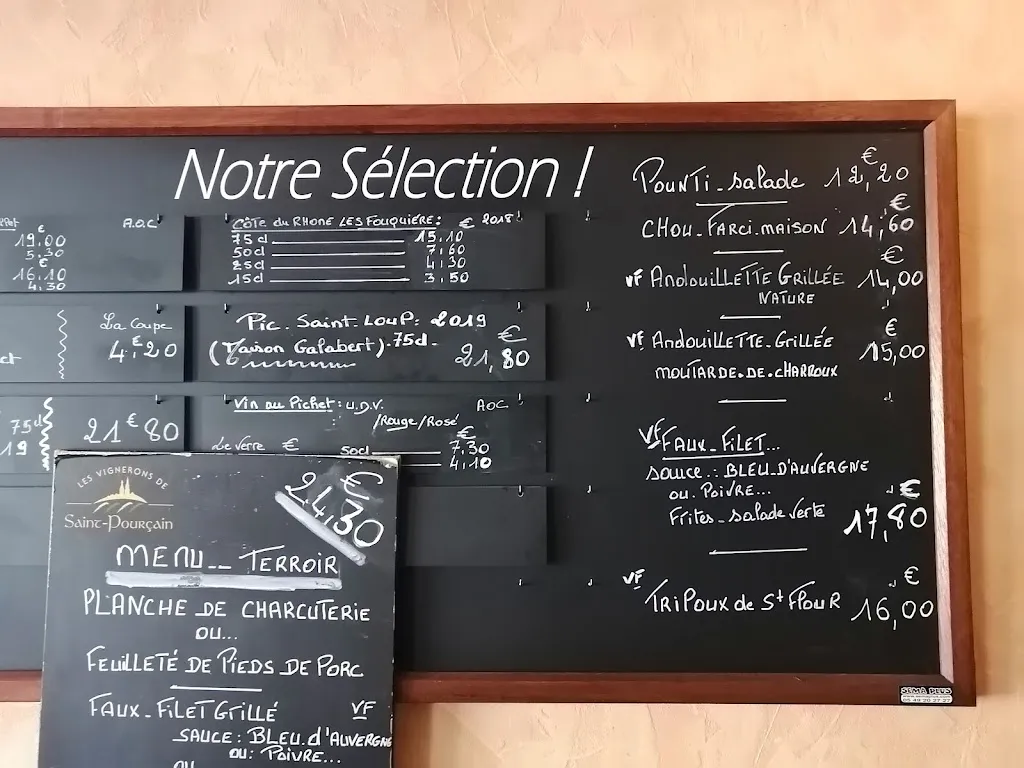 Notre Sélection !
A.O.C
€
19.00
5.30
€
16.10
4.30
La Coupe
€
4.20
75cl
19
21€80
CÔTE du RHONE LES FOUQUIÈRE: € 2018
75cl 15.10
50cl 7,60
25cl 4,30
15cl 3,50
Pic. Saint. Loup: 2019
(Maison Galabert). 75cl. €
21,80
Vin au Pichet: U.D.V. AOC
/Rouge/Rosé
Le Verre € 50cl € 7.30
4.10
POUNTI_salade €12,20
CHOU_FARCI.MAISON €14,60
VF ANDOUILLETTE GRILLÉE €14,00
NATURE
VF ANDOUILLETTE_GRILLÉE €15,00
MOUTARDE.DE.CHARROUX
VF FAUX_FILET...
SAUCE.: BLEU.D'AUVERGNE
OU. POIVRE...
Frites_salade verte €17,80
VF TRIPOUX de St FLOUR €16,00
SEMA PLUS
LES VIGNERONS DE
Saint-Pourçain
€
24,30
MENU__ TERROIR
PLANCHE DE CHARCUTERIE
OU...
FEUILLETÉ DE PIEDS DE PORC
FAUX_FILET GRILLÉ VF
SAUCE: BLEU.d'AUVERGNE
OU: POIVRE...
OU